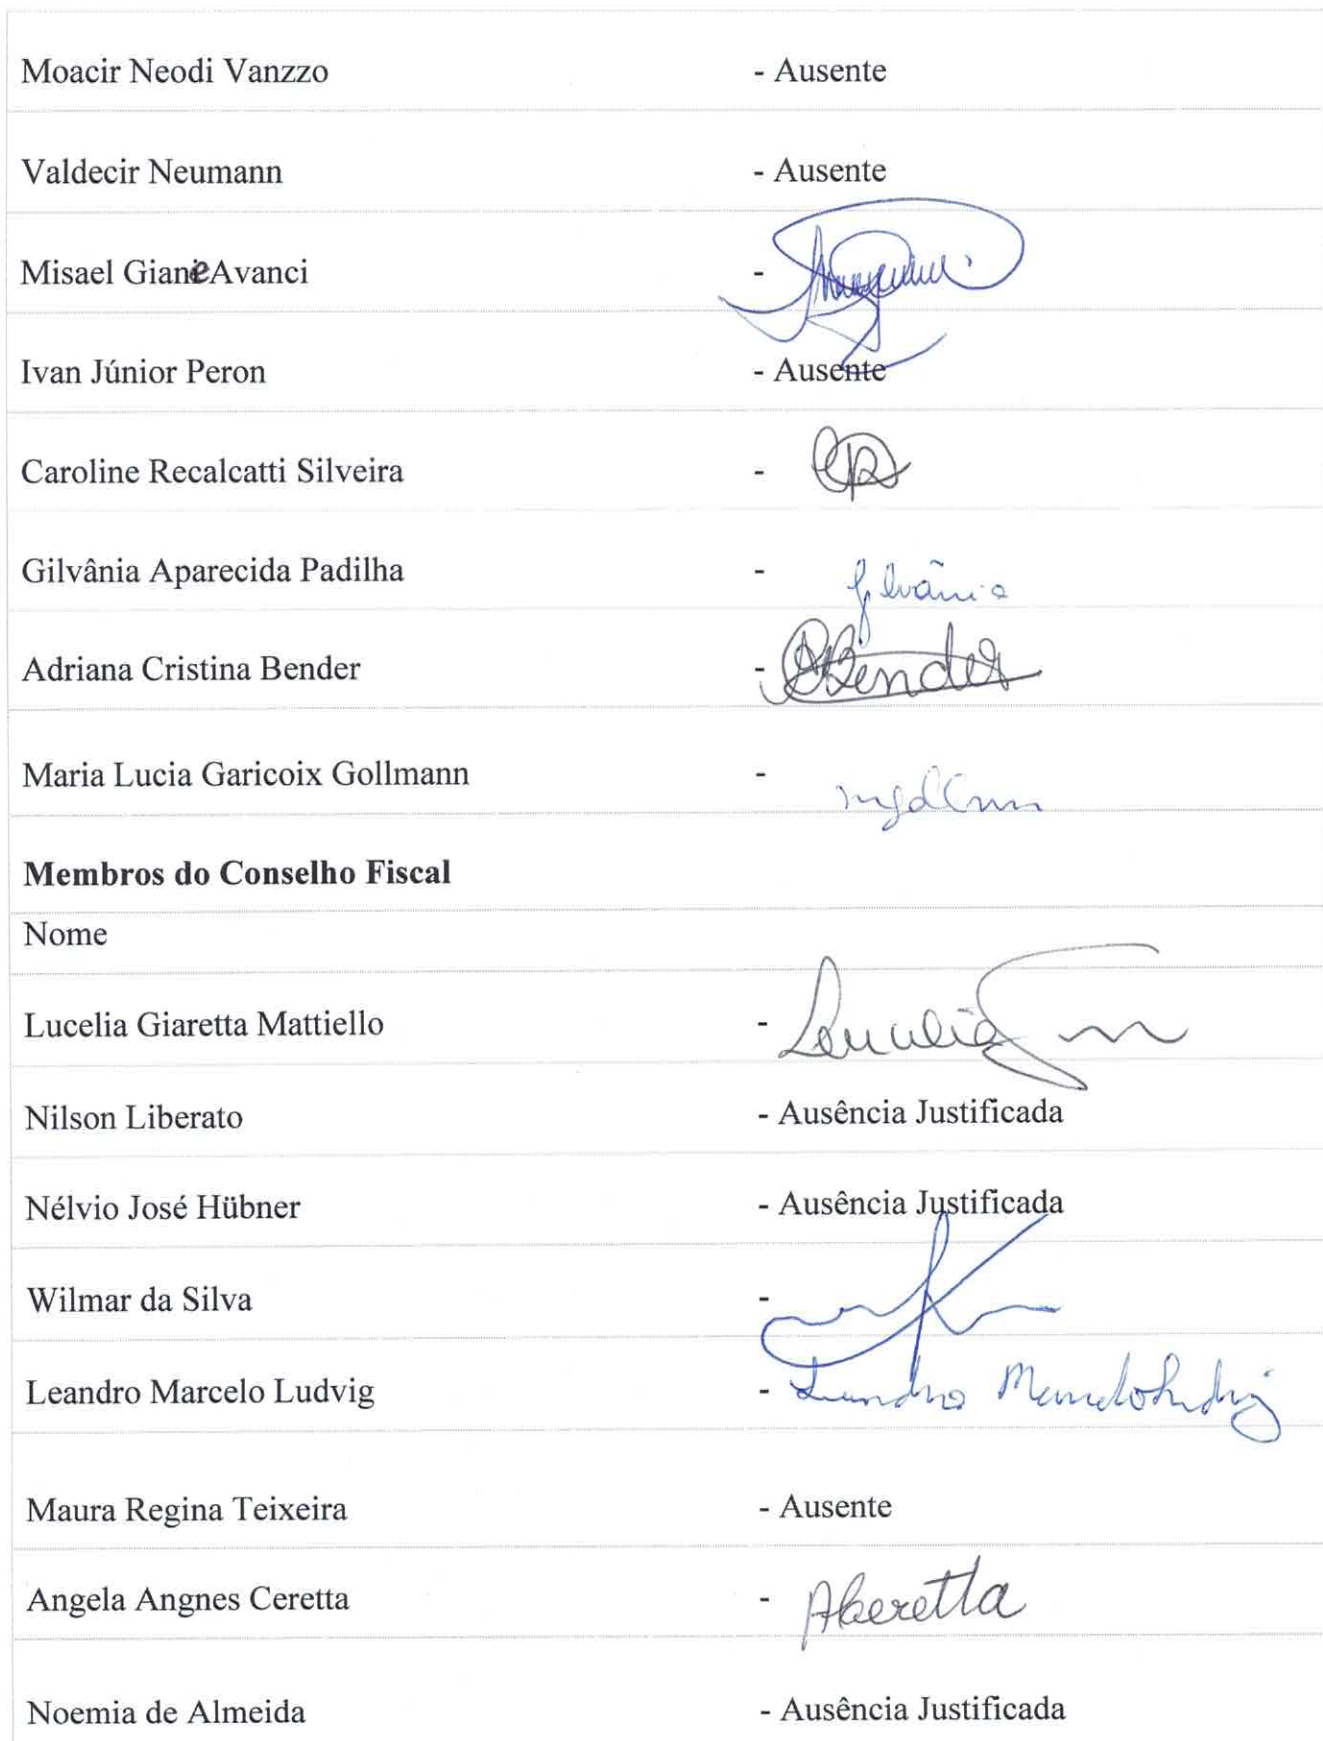 Moacir Neodi Vanzzo - Ausente
Valdecir Neumann - Ausente
Misael Giane Avanci -
Ivan Júnior Peron - Ausente
Caroline Recalcatti Silveira -
Gilvânia Aparecida Padilha - Gilvânia
Adriana Cristina Bender - ABender
Maria Lucia Garicoix Gollmann -
Membros do Conselho Fiscal
Nome
Lucelia Giaretta Mattiello - Lucelia
Nilson Liberato - Ausência Justificada
Nélvio José Hübner - Ausência Justificada
Wilmar da Silva -
Leandro Marcelo Ludvig - Leandro Marcelo Ludvig
Maura Regina Teixeira - Ausente
Angela Angnes Ceretta - ACeretta
Noemia de Almeida - Ausência Justificada